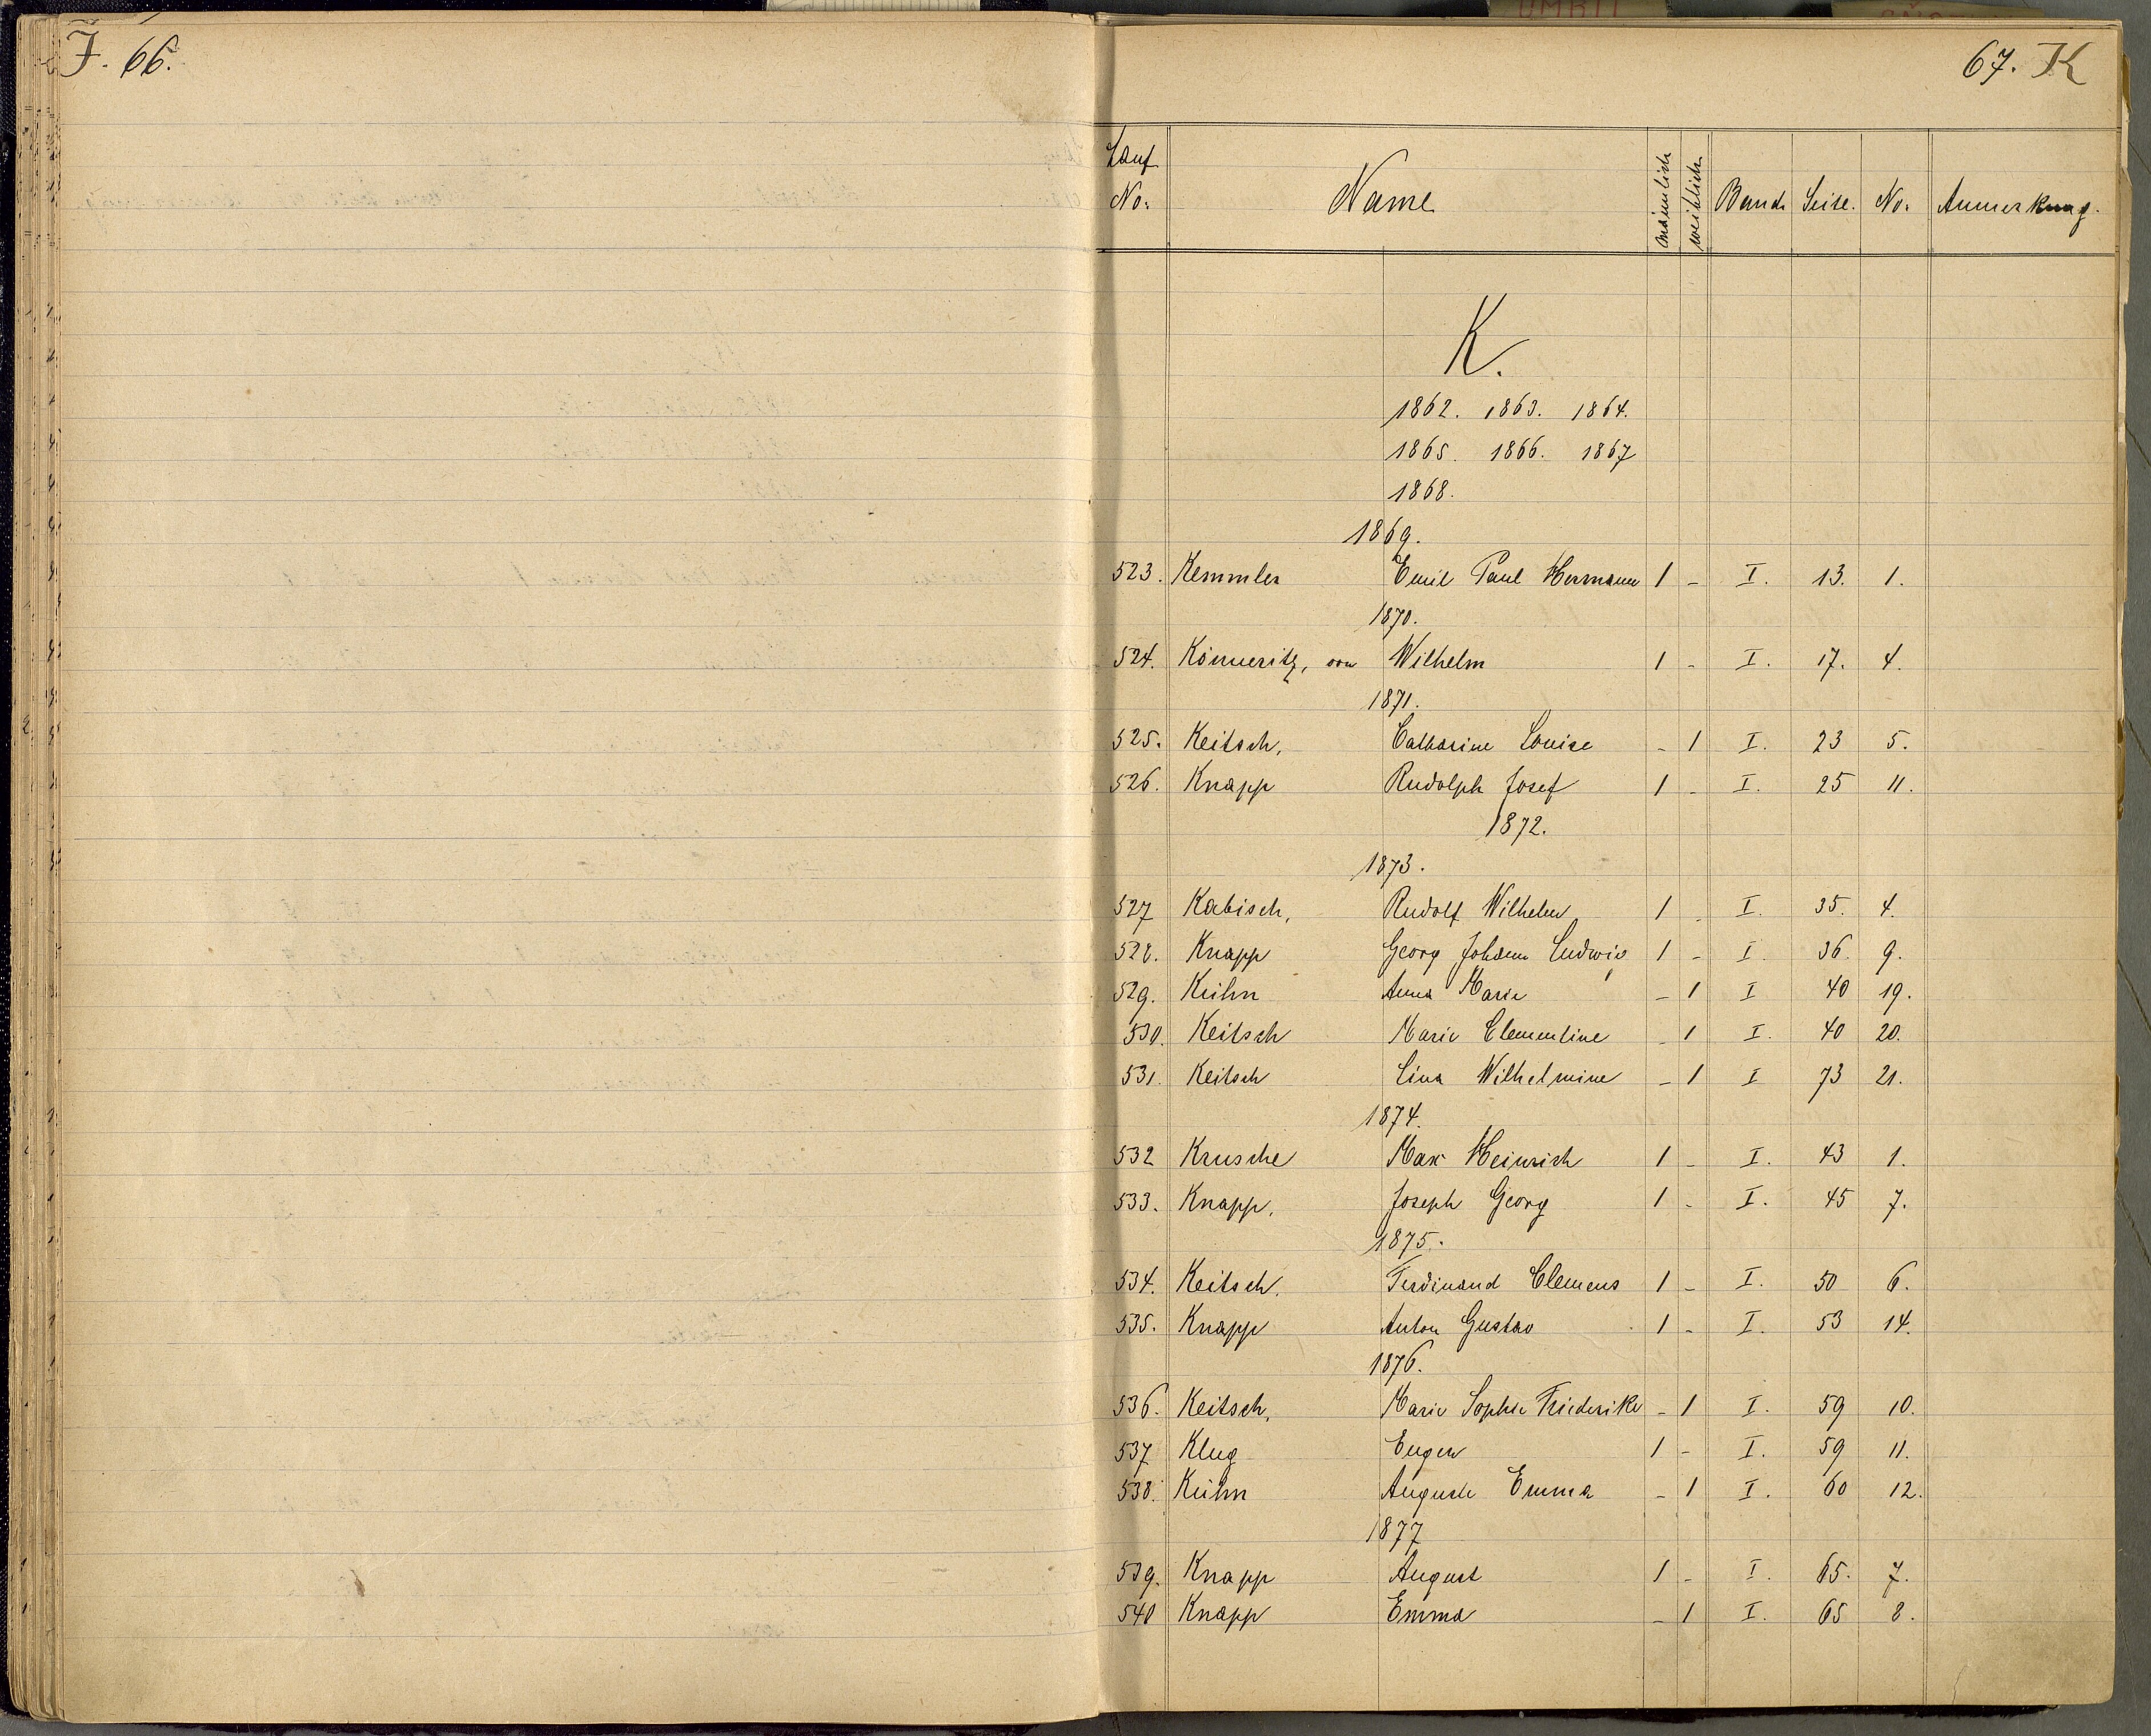 J. 66.
67. K
Lauf No. Name männlich weiblich Band Seite. No. Anmerkung.
K.
1862. 1863. 1864.
1865. 1866. 1867
1868.
1869.
523. Kemmler Emil Paul Hermann 1 - I. 13. 1.
1870.
524. Könneritz, von Wilhelm 1 - I. 17. 4.
1871.
525. Keitsch, Catharine Louise - 1 I. 23 5.
526. Knapp Rudolph Josef 1 - I. 25 11.
1872.
1873.
527 Kabisch, Rudolf Wilhelm 1 - I. 35. 4.
528. Knapp Georg Johann Ludwig 1 - I. 36. 9.
529. Kühn Anna Marie - 1 I 40 19.
530. Keitsch Marie Clementine - 1 I. 40 20.
531. Keitsch Lina Wilhelmine - 1 I 73 21.
1874.
532 Krusche Max Heinrich 1 - I. 43 1.
533. Knapp, Joseph Georg 1 - I. 45 7.
1875.
534. Keitsch. Ferdinand Clemens 1 - I. 50 6.
535. Knapp Anton Gustav 1 - I. 53 14.
1876.
536. Keitsch, Marie Sophie Friederike - 1 I. 59 10.
537 Klug Eugen 1 - I. 59 11.
538. Kühn Auguste Emma - 1 I. 60 12.
1877
539. Knapp August 1 - I. 65. 7.
540 Knapp Emma - 1 I. 65 8.